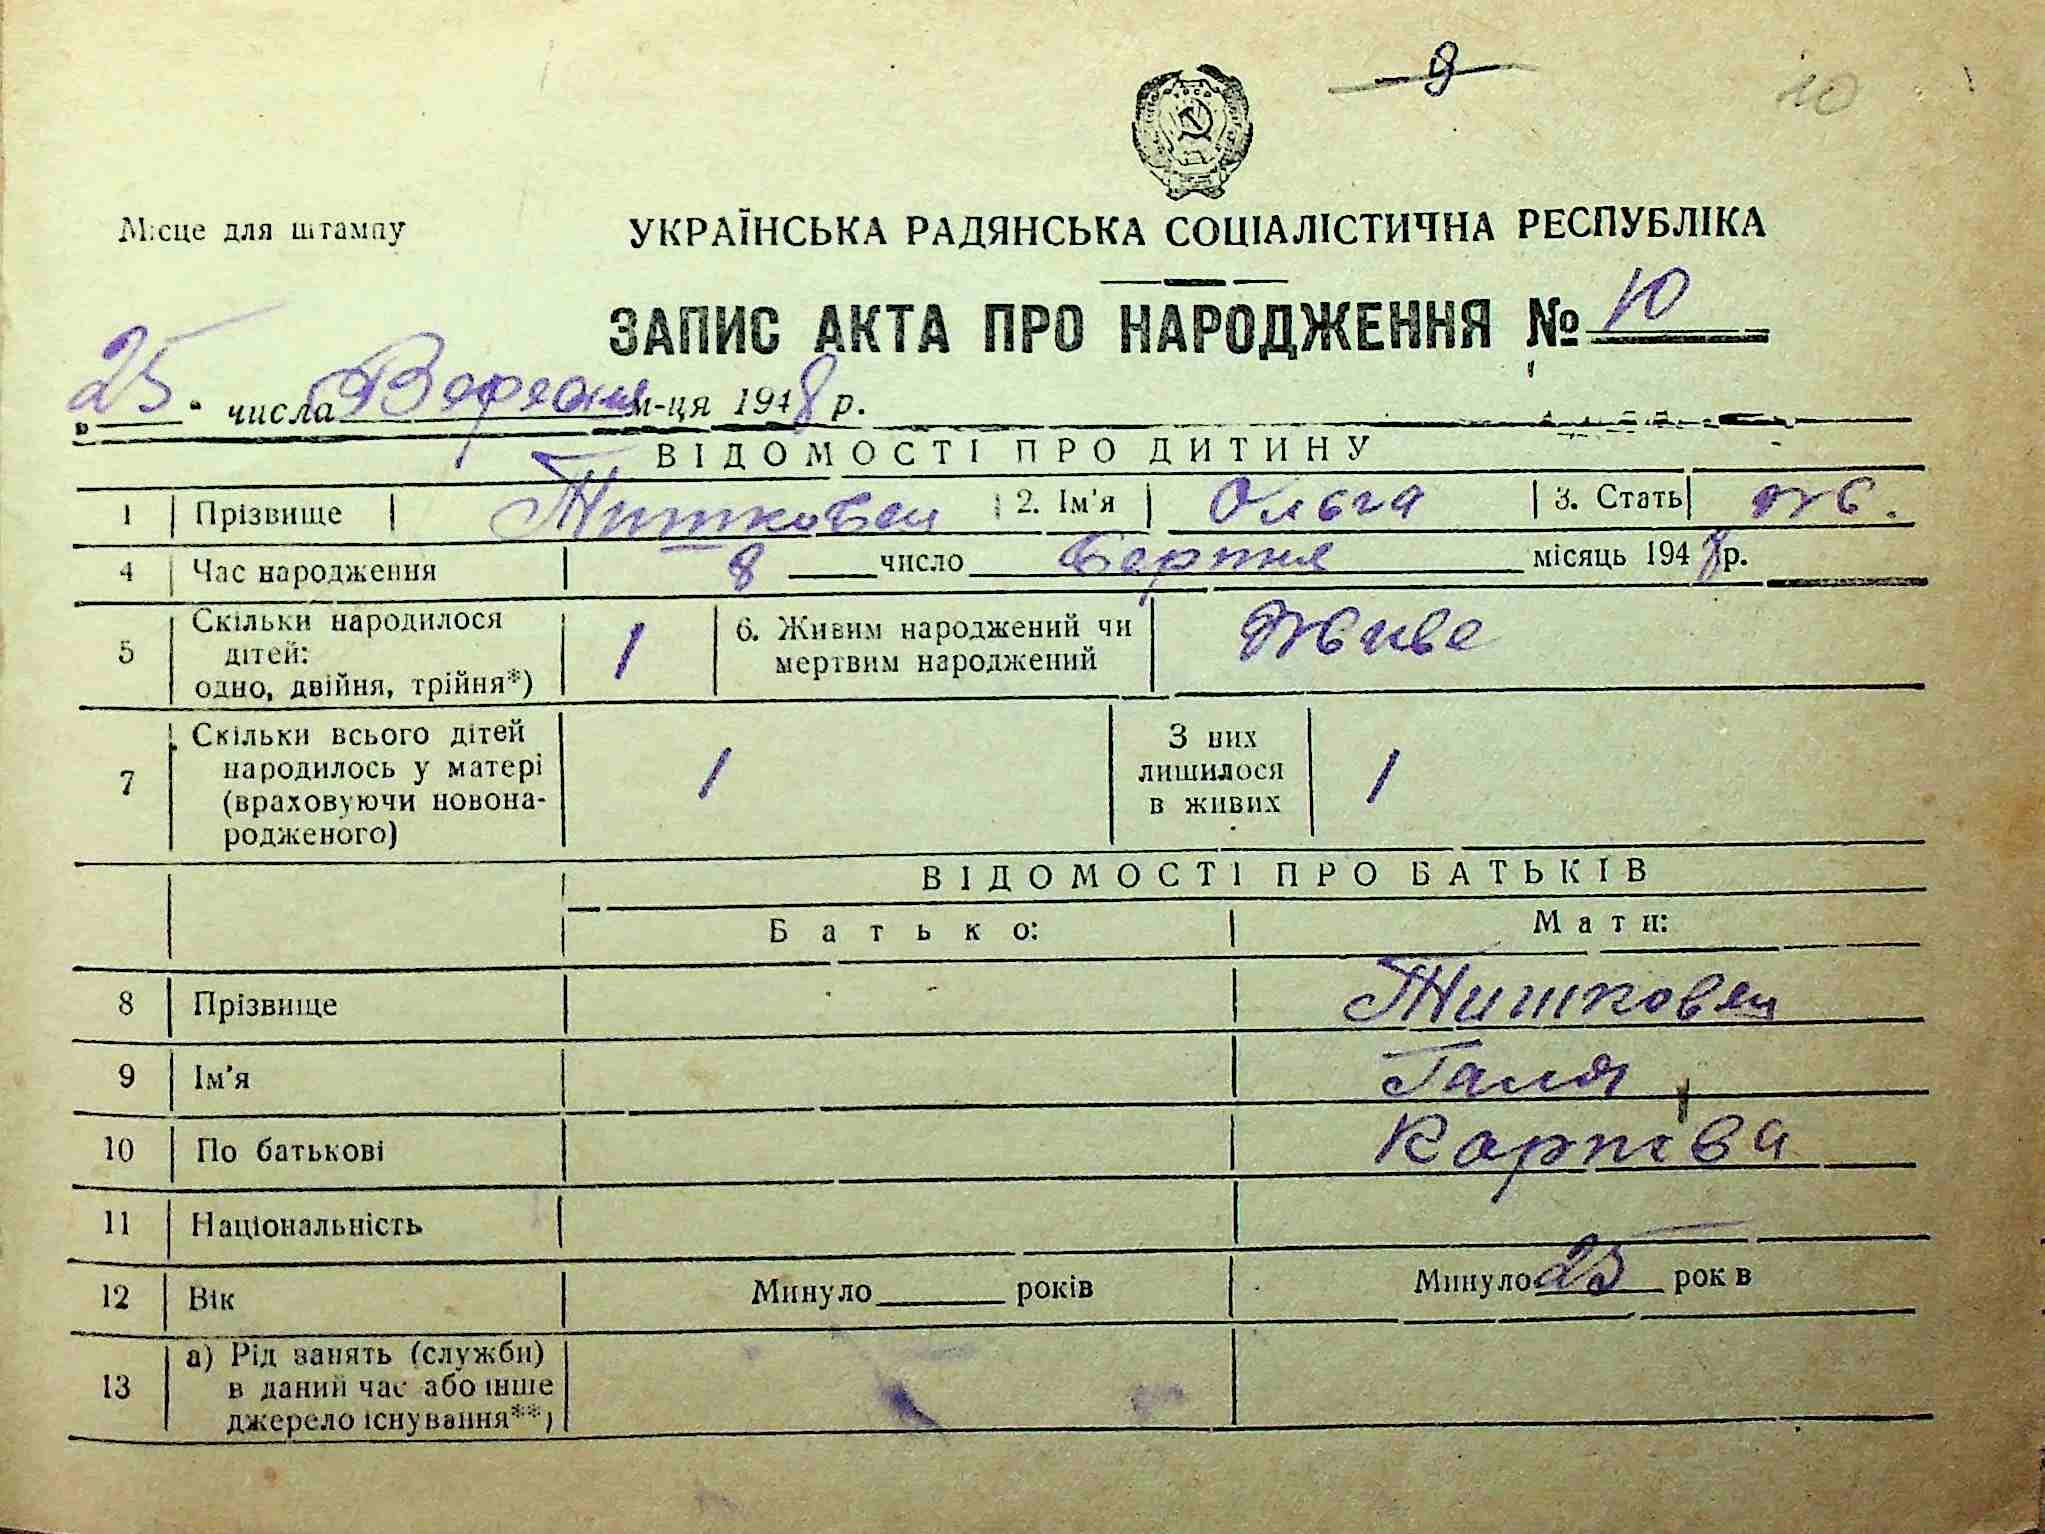 9
10
Місце для штампу
УКРАЇНСЬКА РАДЯНСЬКА СОЦІАЛІСТИЧНА РЕСПУБЛІКА
ЗАПИС АКТА ПРО НАРОДЖЕННЯ № 10
25 числа Вересня м-ця 1948 р.
ВІДОМОСТІ ПРО ДИТИНУ
1 Прізвище Тишковец 2. Ім'я Ольга 3. Стать жв.
4 Час народження 8 число Серпня місяць 1948 р.
5 Скільки народилося дітей: одно, двійня, трійня*) 1 6. Живим народжений чи мертвим народжений живе
7 Скільки всього дітей народилось у матері (враховуючи новона-родженого) 1 З них лишилося в живих 1
ВІДОМОСТІ ПРО БАТЬКІВ
Батько: Мати:
8 Прізвище Тишковец
9 Ім'я Галя
10 По батькові Карпівa
11 Національність
12 Вік Минуло років Минуло 25 рок в
13 а) Рід занять (служби) в даний час або інше джерело існування**)